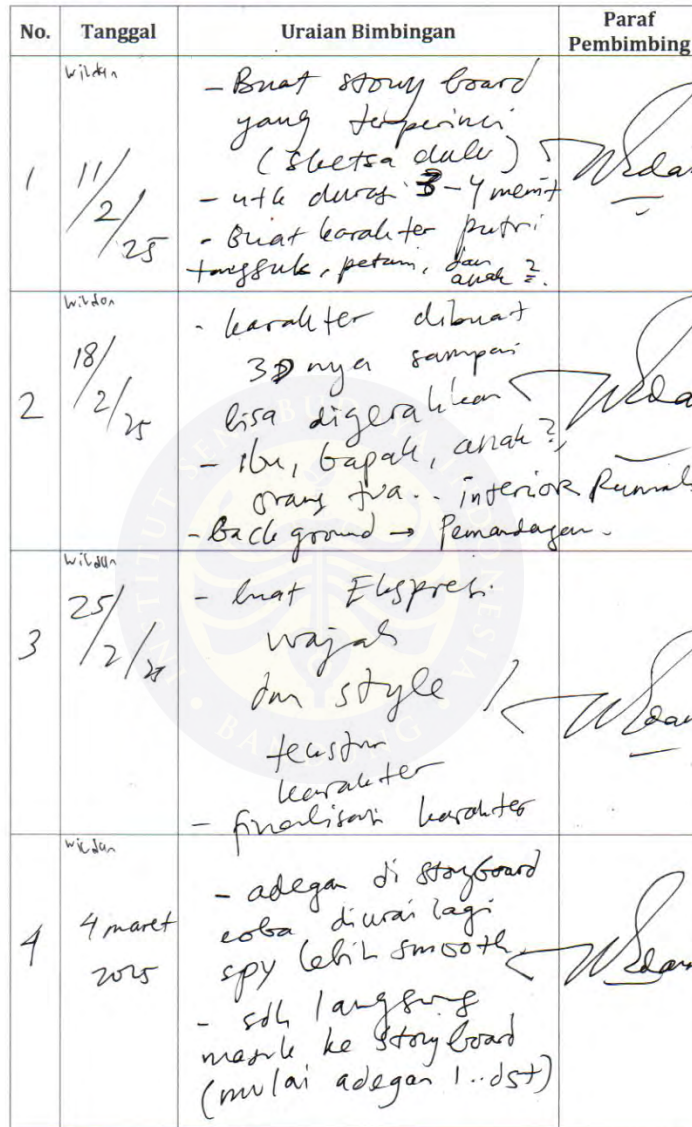 No. Tanggal Uraian Bimbingan Paraf Pembimbing
Wildan
1
11/2/25
- Buat story board
yang terperinci
(sketsa dulu)
- utk durasi 3-4 menit
- Buat karakter putri
tangguk, petani, dan
anak2.
Wildan
2
18/2/25
- karakter dibuat
3D nya sampai
bisa digerakkan
- ibu, bapak, anak2,
orang tua.. interior Rumah
- Background → Pemandagan.
Wildan
3
25/2/25
- buat Ekspresi
wajah
dan style
tekstur
karakter
- finalisasi karakter
Wildan
4
4 maret
2025
- adegan di storyboard
coba diurai lagi
spy lebih smooth
- sdh langsung
masuk ke storyboard
(mulai adegan 1..dst)
INSTITUT SENI BUDAYA INDONESIA
BANDUNG